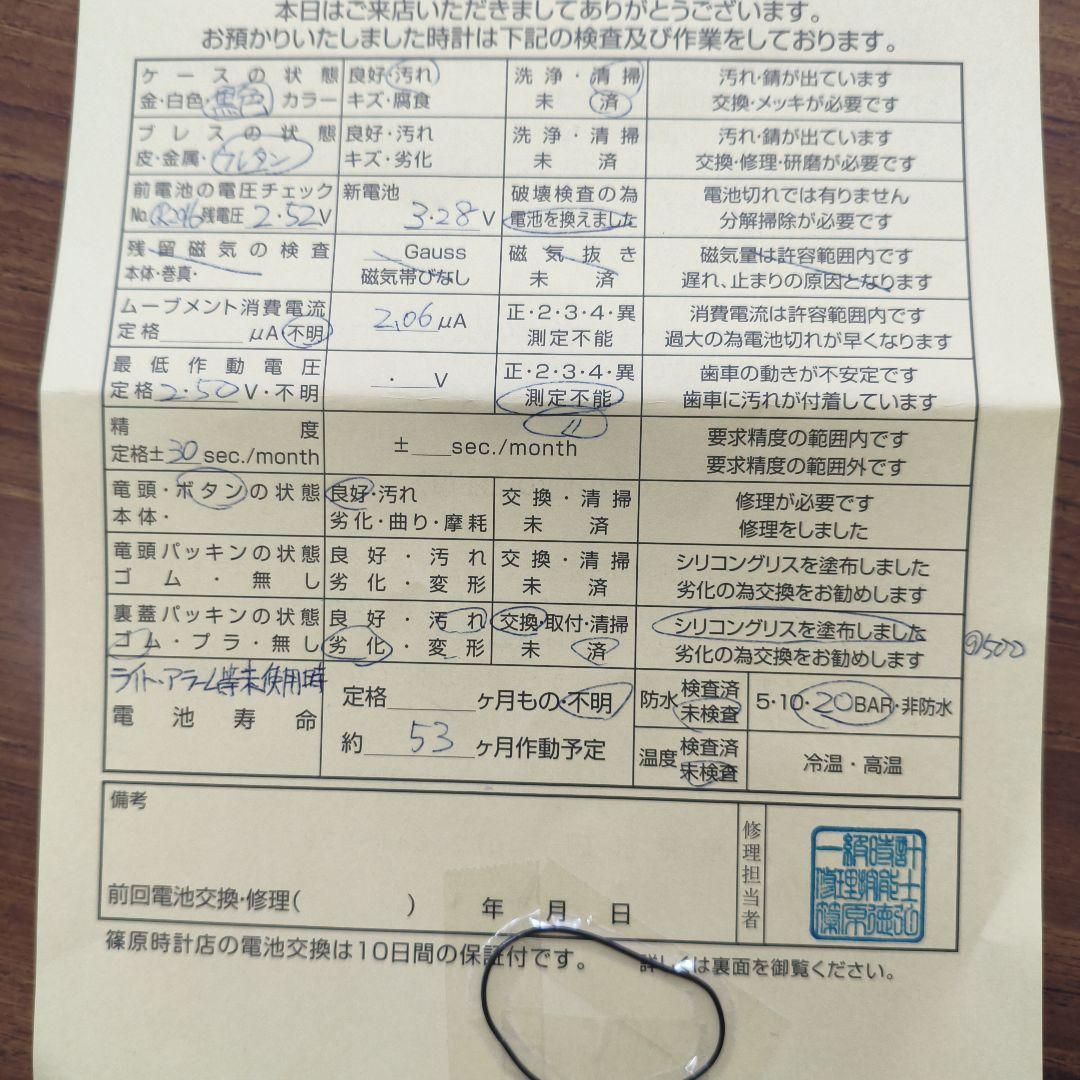 本日はご来店いただきましてありがとうございます。
お預かりいたしました時計は下記の検査及び作業をしております。
ケースの状態 良好・汚れ 洗浄・清掃 汚れ・錆が出ています
金・白色・黒色 カラー キズ・腐食 未 済 交換・メッキが必要です
ブレスの状態 良好・汚れ 洗浄・清掃 汚れ・錆が出ています
皮・金属・ウレタン キズ・劣化 未 済 交換・修理・研磨が必要です
前電池の電圧チェック 新電池 破壊検査の為 電池切れでは有りません
No. 残電圧 2.52V 3.28V 電池を換えました 分解掃除が必要です
残留磁気の検査 Gauss 磁気抜き 磁気量は許容範囲内です
本体・巻真・ 磁気帯びなし 未 済 遅れ、止まりの原因となります
ムーブメント消費電流 2.06μA 正・2・3・4・異 消費電流は許容範囲内です
定格 μA 不明 測定不能 過大の為電池切れが早くなります
最低作動電圧 . V 正・2・3・4・異 歯車の動きが不安定です
定格2.50V・不明 測定不能 歯車に汚れが付着しています
精度 ± sec./month 〃 要求精度の範囲内です
定格±30sec./month 要求精度の範囲外です
竜頭・ボタンの状態 良好・汚れ 交換・清掃 修理が必要です
本体・ 劣化・曲り・摩耗 未 済 修理をしました
竜頭パッキンの状態 良好・汚れ 交換・清掃 シリコングリスを塗布しました
ゴム・無し 劣化・変形 未 済 劣化の為交換をお勧めします
裏蓋パッキンの状態 良好・汚れ 交換・取付・清掃 シリコングリスを塗布しました
ゴム・プラ・無し 劣化・変形 未 済 劣化の為交換をお勧めします
ライト・アラーム等未使用時 定格 ヶ月もの・不明 防水 検査済 未検査 5・10・20BAR・非防水
電池寿命 約 53 ヶ月作動予定 温度 検査済 未検査 冷温・高温
備考
修理担当者
一級時計
修理技能士
篠原
前回電池交換・修理( ) 年 月 日
篠原時計店の電池交換は10日間の保証付です。 詳しくは裏面を御覧ください。